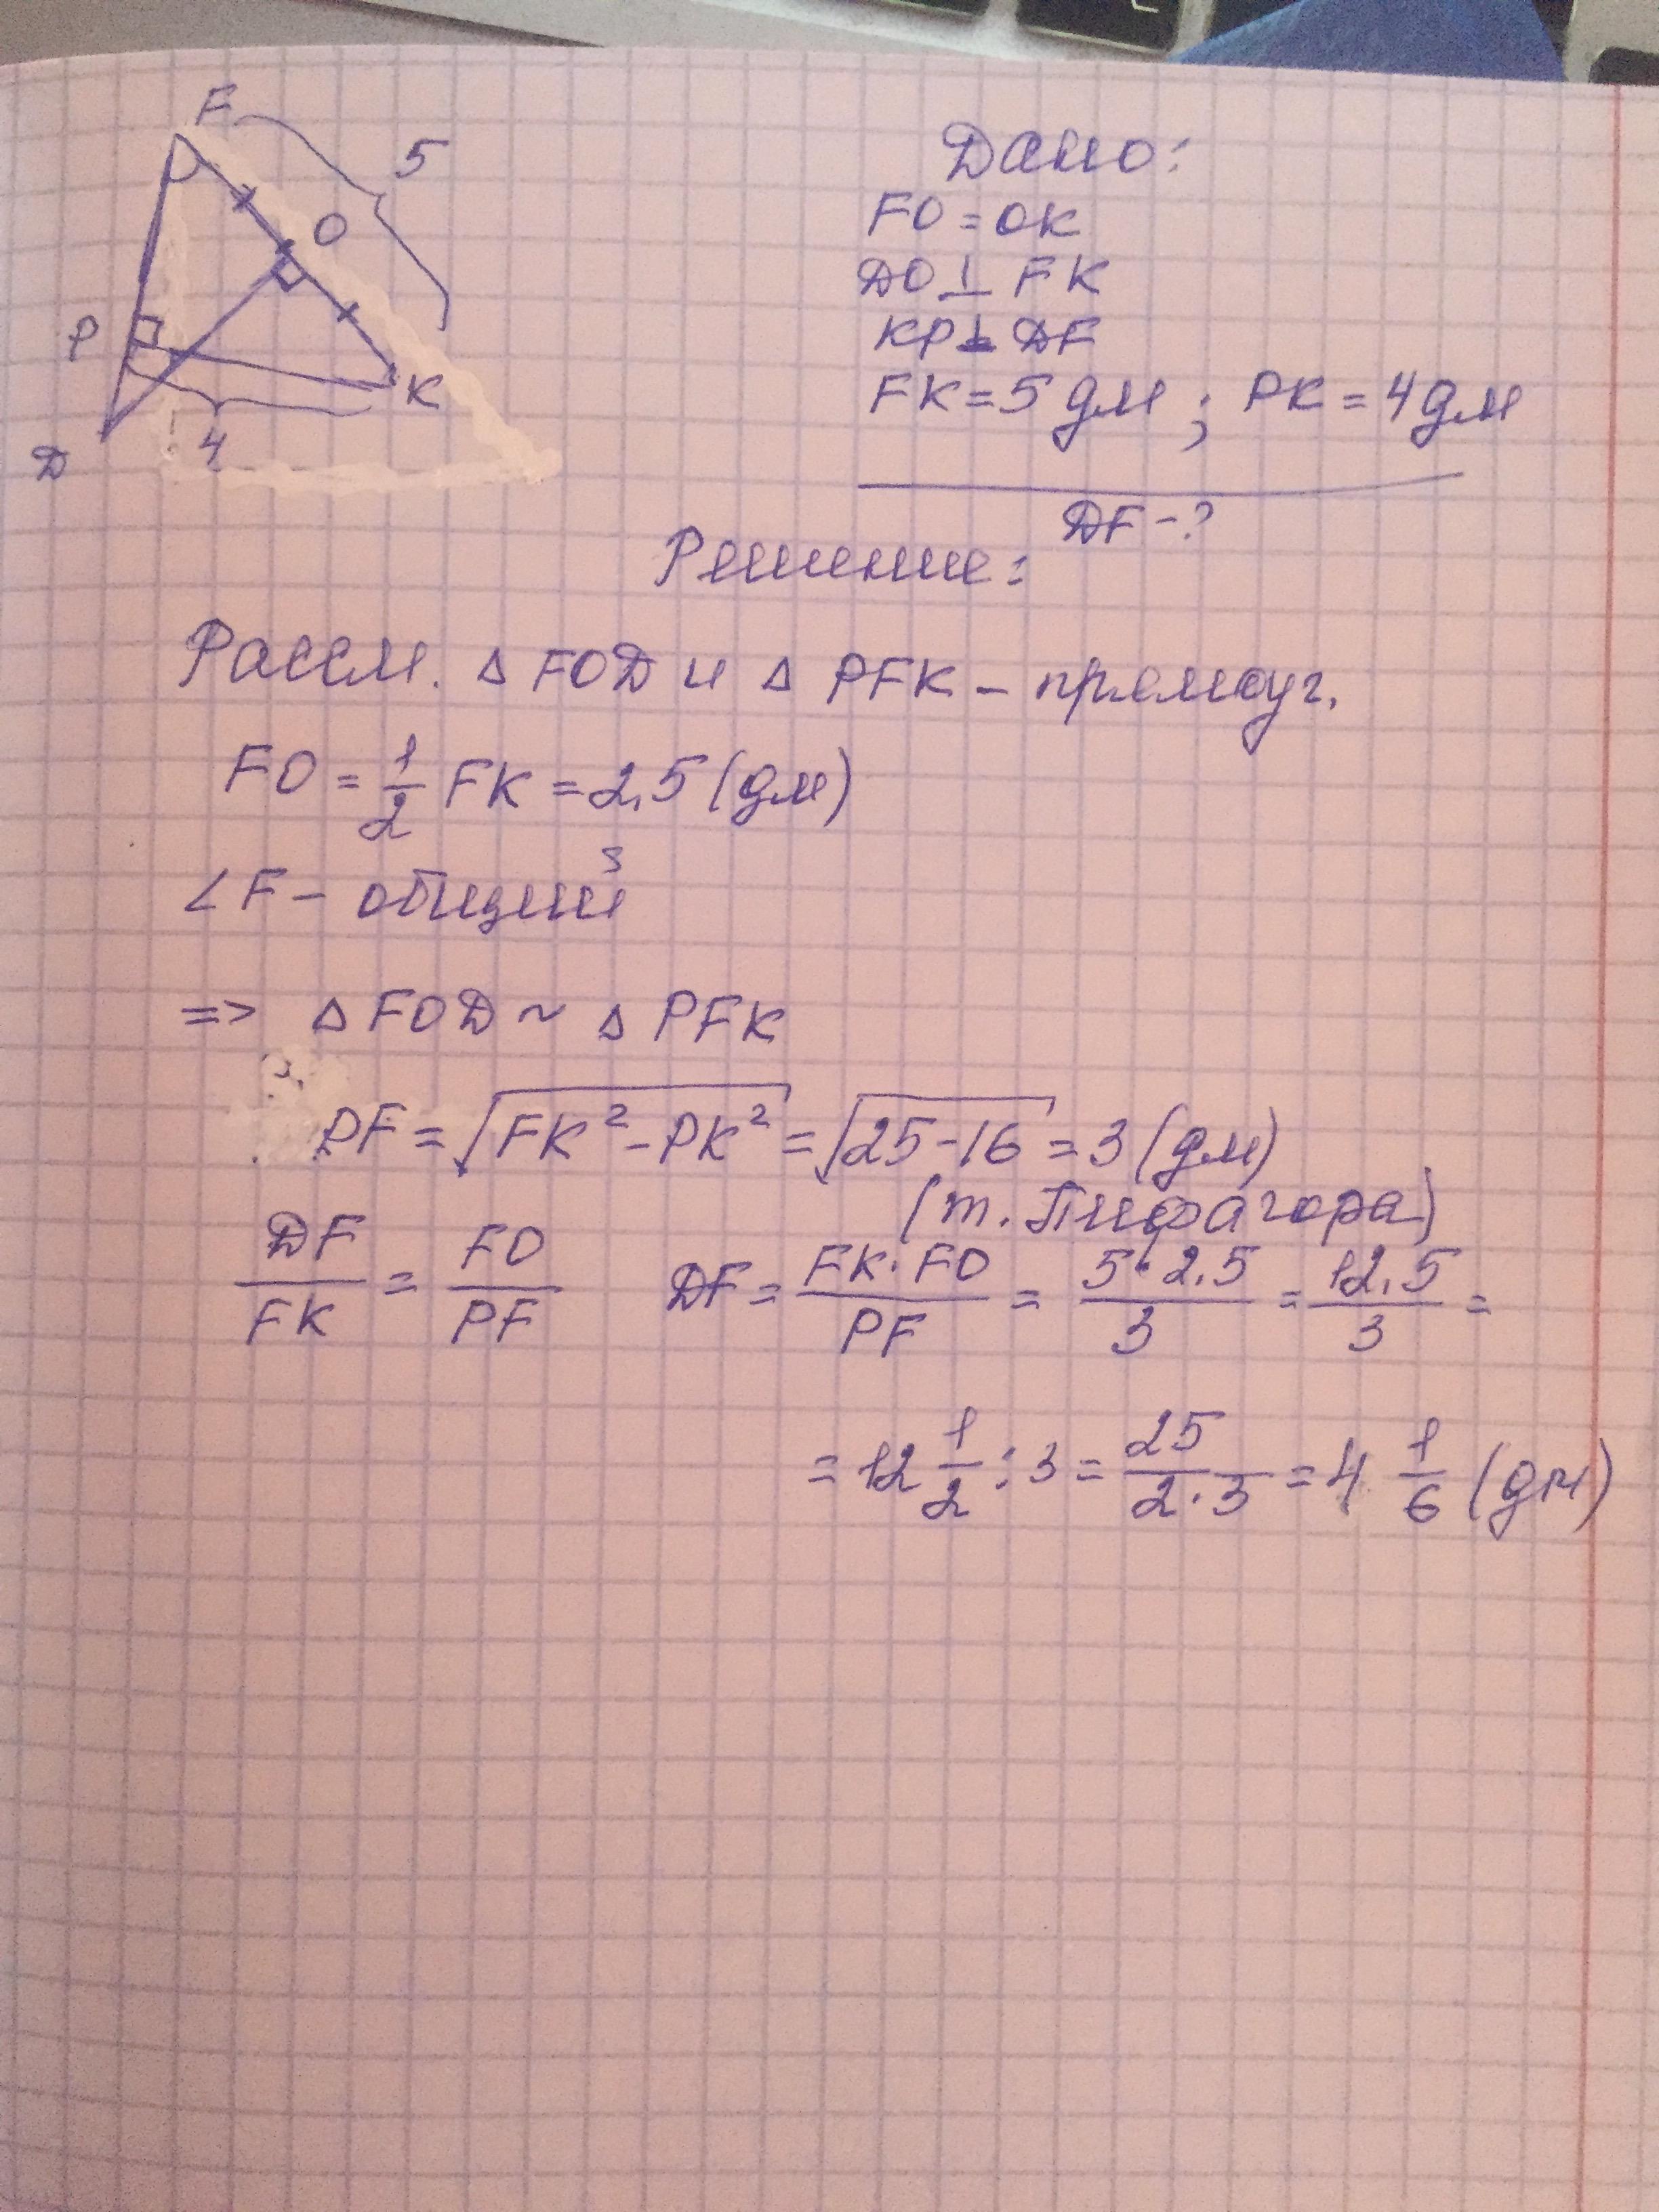 F
5
O
P
K
4
D
Дано:
FO = OK
DO ⊥ FK
KP ⊥ DF
FK = 5 дм ; PK = 4 дм
DF - ?
Решение:
Рассм. Δ FOD и Δ PFK - прямоуг.
FO = 1/2 FK = 2,5 (дм)
∠F - общий
=> Δ FOD ~ Δ PFK
PF = √(FK² - PK²) = √(25-16) = 3 (дм)
(т. Пифагора)
DF/FK = FO/PF DF = FK·FO/PF = 5·2,5/3 = 12,5/3 =
= 12 1/2 : 3 = 25/2·3 = 4 1/6 (дм)